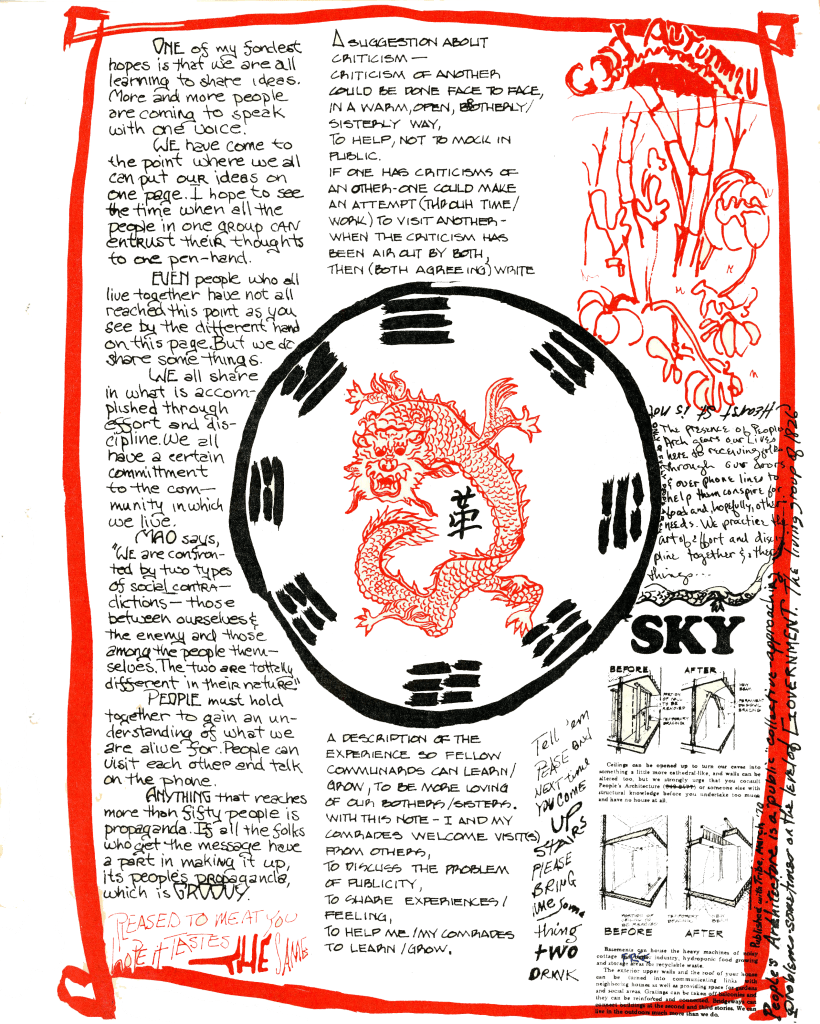 ONE of my fondest
hopes is that we are all
learning to share ideas.
More and more people
are coming to speak
with one voice.
WE have come to
the point where we all
can put our ideas on
one page. I hope to see
the time when all the
people in one group CAN
entrust their thoughts
to one pen-hand.
EVEN people who all
live together have not all
reached this point as you
see by the different hand
on this page. But we do
share some things.
WE all share
in what is accom-
plished through
effort and dis-
cipline. We all
have a certain
committment
to the com-
munity in which
we live.
MAO says,
"We are confron-
ted by two types
of social contra-
dictions — those
between ourselves &
the enemy and those
among the people them-
selves. The two are totally
different in their nature."
PEOPLE must hold
together to gain an un-
derstanding of what we
are alive for. People can
visit each other and talk
on the phone.
ANYTHING that reaches
more than fifty people is
propaganda. If all the folks
who get the message have
a part in making it up,
its people's propaganda,
which is GROOVY.
PLEASED TO MEAT YOU
HOPE IT TASTES
THE SAME
A SUGGESTION ABOUT
CRITICISM —
CRITICISM OF ANOTHER
COULD BE DONE FACE TO FACE,
IN A WARM, OPEN, BROTHERLY/
SISTERLY WAY,
TO HELP, NOT TO MOCK IN
PUBLIC.
IF ONE HAS CRITICISMS OF
AN OTHER - ONE COULD MAKE
AN ATTEMPT (THROUH TIME/
WORK) TO VISIT ANOTHER -
WHEN THE CRITICISM HAS
BEEN AIR OUT BY BOTH,
THEN (BOTH AGREEING) WRITE
革
A DESCRIPTION OF THE
EXPERIENCE SO FELLOW
COMMUNARDS CAN LEARN/
GROW, TO BE MORE LOVING
OF OUR BOTHERS/SISTERS.
WITH THIS NOTE - I AND MY
COMRADES WELCOME VISIT(S)
FROM OTHERS,
TO DISCUSS THE PROBLEM
OF PUBLICITY,
TO SHARE EXPERIENCES/
FEELING,
TO HELP ME/MY COMRADES
TO LEARN/GROW.
Tell 'em
NEXT time
YOU COME
UP
STAIRS
PLEASE
BRING
me some
thing
TWO
DRINK
Hearst St. is not
The presence of People's
Arch gears our lives
here to receiving folks
through our doors
& over phone lines to
help them conspire for
food and, hopefully, other
needs. We practice the
art of effort and disci-
pline together & other
things...
SKY
BEFORE
AFTER
Ceilings can be opened up to turn our caves into
something a little more cathedral-like, and walls can be
altered too, but we strongly urge that you consult
People's Architecture or someone else with
structural knowledge before you undertake too much
and have no house at all.
BEFORE
AFTER
Basements can house the heavy machines of noisy
cottage industry, hydroponic food growing
and storage areas for recyclable waste.
The exterior upper walls and the roof of your homes
can be turned into communicating links with
neighboring houses as well as providing space for gardens
and social areas. Gratings can be taken off balconies and
they can be reinforced and connected. Bridgeways can
connect buildings at the second and third stories. We can
live in the outdoors much more than we do.
Published with Tribe, March 70
People's Architecture is a "public" collective - approaching
problems sometimes on the level of GOVERNMENT. The living group of 1826